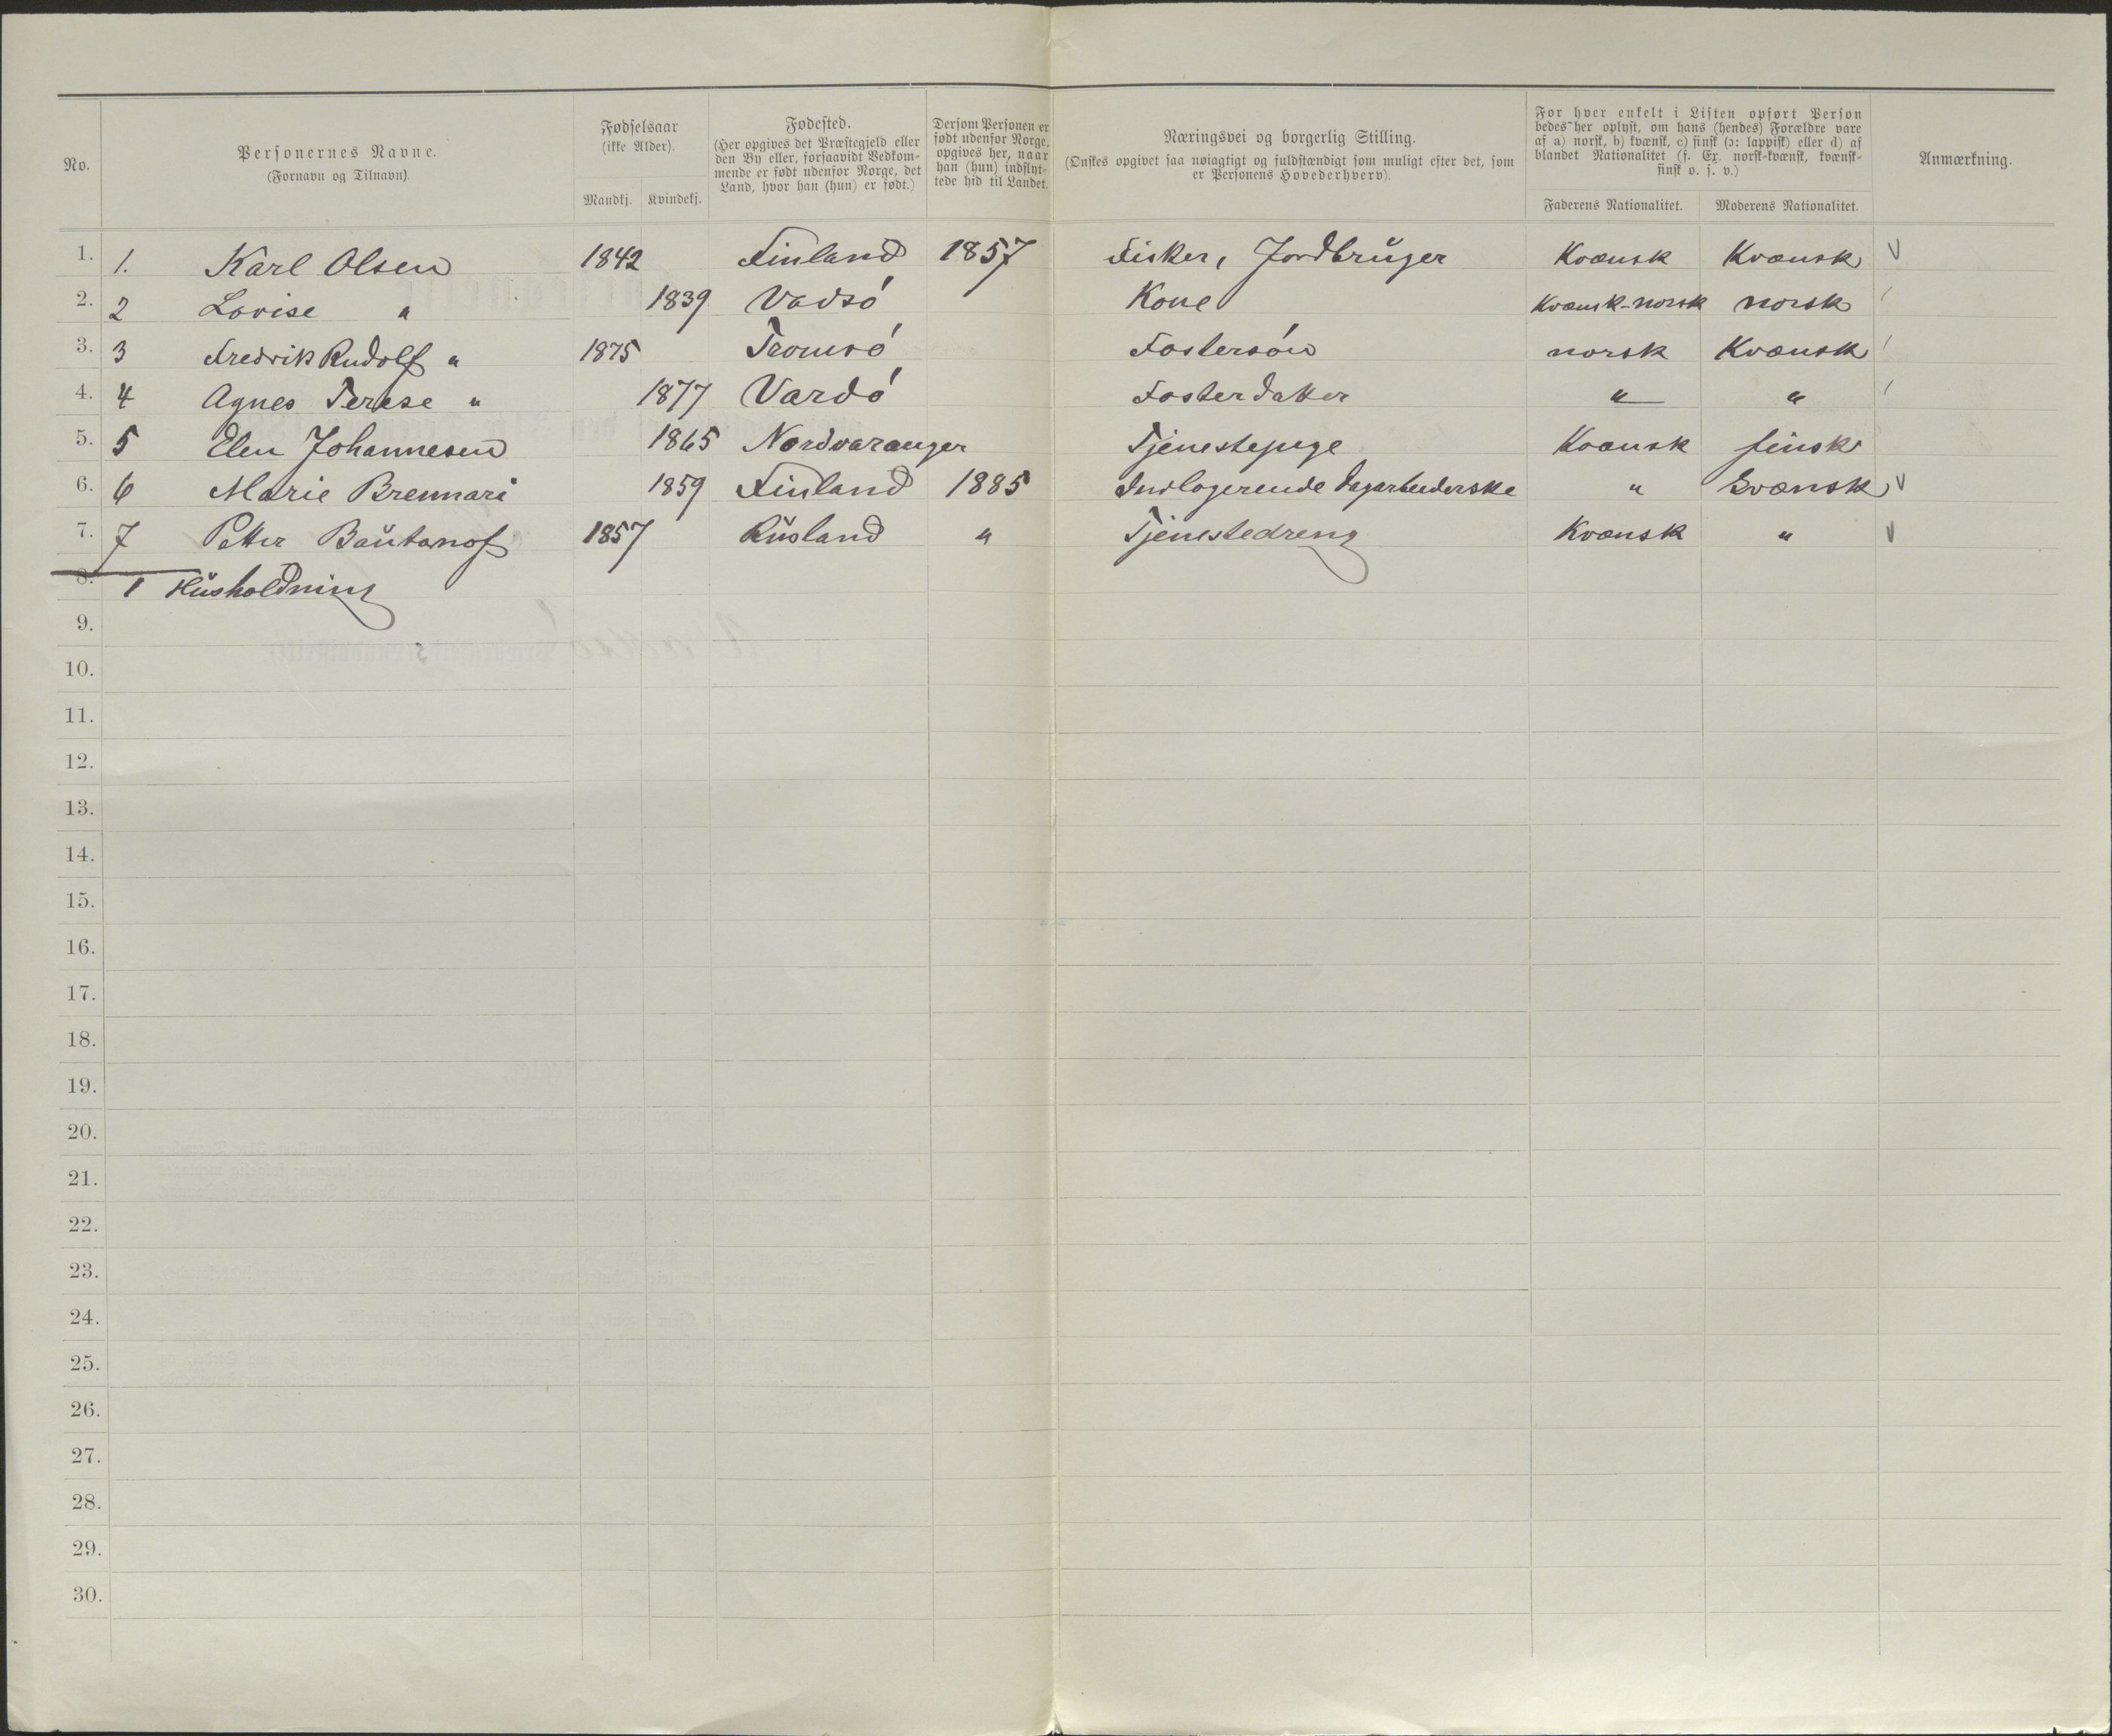 No. Personernes Navne. (Fornavn og Tilnavn). Fødselsaar (ikke Alder). Mandkj. Kvindekj. Fødested. (Her opgives det Præstegjeld eller den By eller, forsaavidt Vedkommende er født udenfor Norge, det Land, hvor han (hun) er født.) Dersom Personen er født udenfor Norge, opgives her, naar han (hun) indflyttede hid til Landet. Næringsvei og borgerlig Stilling. (Ønskes opgivet saa nøiagtigt og fuldstændigt som muligt efter det, som er Personens Hovederhverv). For hver enkelt i Listen opført Person bedes her oplyst, om hans (hendes) Forældre vare af a) norsk, b) kvænsk, c) finsk (ɔ: lappisk) eller d) af blandet Nationalitet (f. Ex. norsk-kvænsk, kvænsk-finsk o. s. v.) Faderens Nationalitet. Moderens Nationalitet. Anmærkning.
1. 1. Karl Olsen 1842 Finland 1857 Fisker, Jordbruger Kvænsk Kvænsk V
2. 2 Lovise " 1839 Vadsø Kone Kvænsk-norsk norsk /
3. 3 Fredrik Rudolf " 1875 Tromsø Fostersøn norsk Kvænsk /
4. 4 Agnes Terese " 1877 Vardø Fosterdatter " " /
5. 5 Elen Johannesen 1865 Nordvaranger Tjenestepige Kvænsk finsk
6. 6 Marie Brennari 1859 Finland 1885 Indlogerende Dagarbeiderske " Svænsk V
7. 7 Petter Bautanof 1857 Rusland " Tjenestedreng Kvænsk " V
8. 1 Husholdning
9.
10.
11.
12.
13.
14.
15.
16.
17.
18.
19.
20.
21.
22.
23.
24.
25.
26.
27.
28.
29.
30.